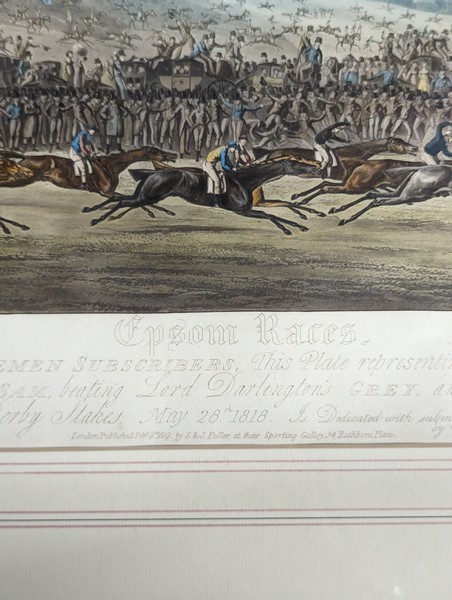 Epsom Races.
EMEN SUBSCRIBERS, This Plate representin
SAM, beating Lord Darlington's GREY, an
erby Stakes, May 28th 1818. Is Dedicated with subm
by
London Published Feby 5th 1819, by S. & J. Fuller at their Sporting Gallery, 34 Rathbone Place.